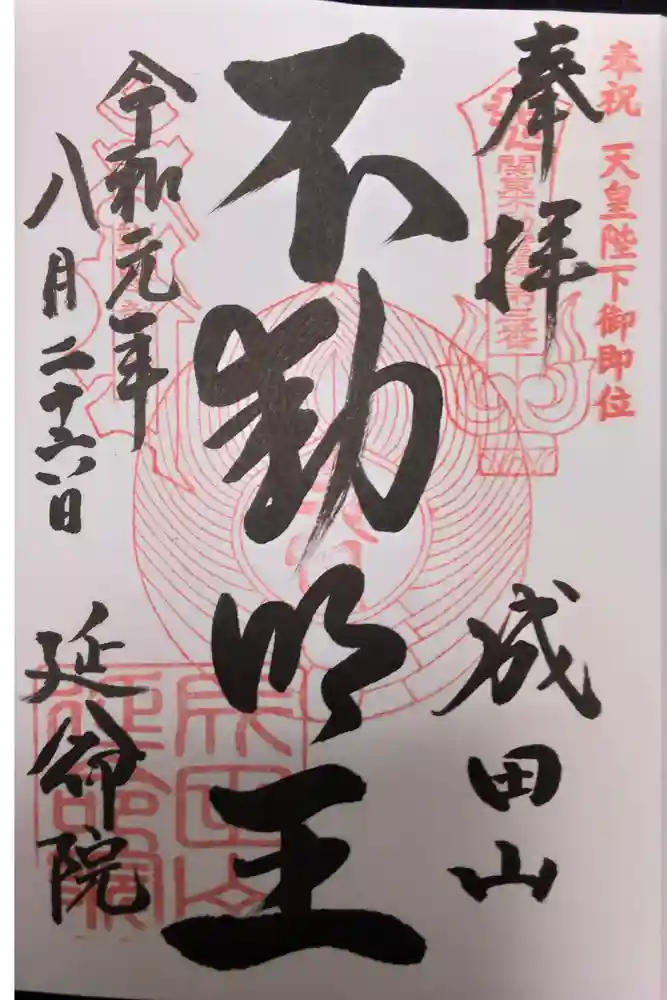 奉祝 天皇陛下御即位
奉拝
成田山
不動明王
令和元年
八月二十六日
延命院
成田山
延命院